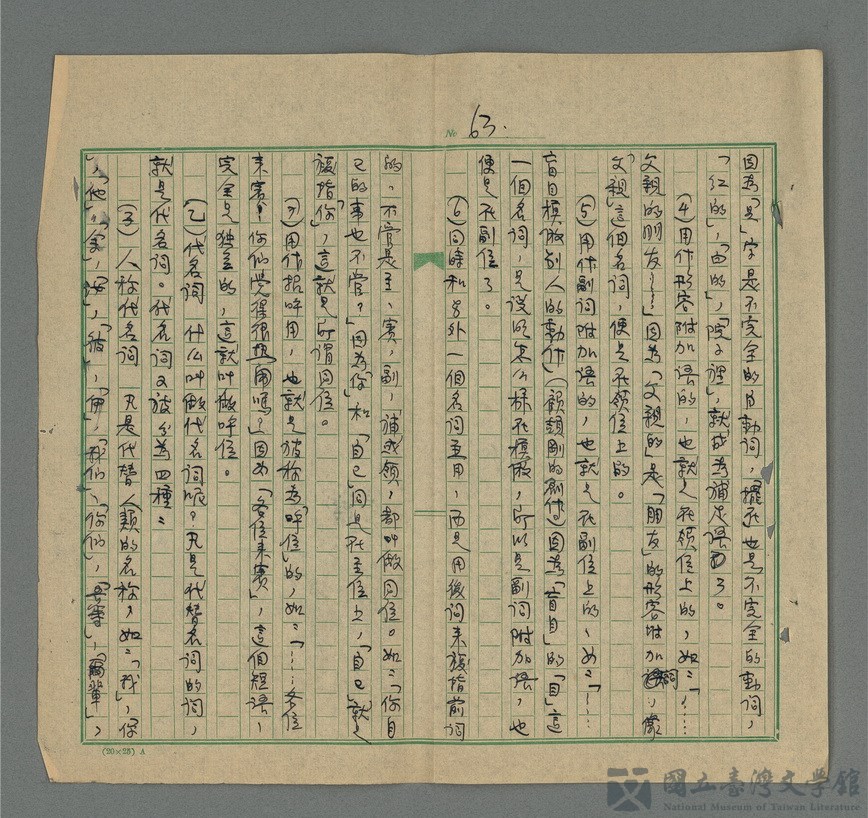 No 63.
因為「是」字是不完全的自動詞，擺在也是不完全的動詞，
「紅的」，「白的」，「院子裡」，就成為補足語了。
(4)用作形容附加語的，也就是在領位上的，如：「……
父親的朋友……」因為「父親的」是「朋友」的形容附加詞，像
「父親」這個名詞，便是在領位上的。
(5)用作副詞附加語的，也就是在副位上的，如：「……
盲目模倣別人的動作」(顧頡剛的創作)因為「盲目」的「目」這
一個名詞，是說明怎么樣在模倣，所以是副詞附加語，也
便是在副位了。
(6)同時和另外一個名詞並用，而是用後詞來複指前詞
的，不管是主，賓，副，補或領，都叫做同位。如：「你自
己的事也不管？」因為「你」和「自己」同是在主位上，「自己」就是
複指「你」，這就是所謂同位。
(7)用作招呼用，也就是被稱為「呼位」的，如：「……各位
來賓！你們覺得很 嗎？」因為「各位來賓」，這個短語，
完全是独立的，這就叫做呼位。
(2)代名詞 什么叫做代名詞呢？凡是代替名詞的詞，
就是代名詞。代名詞又被分為四種：
(3)人称代名詞 凡是代替人類的名称，如：「我」，「你
」，「他」，「余」，「汝」，「彼」，「伊」，「我们」、「你们」，「吾等」，「爾輩」，
(20×25) A
國立臺灣文學館
National Museum of Taiwan Literature